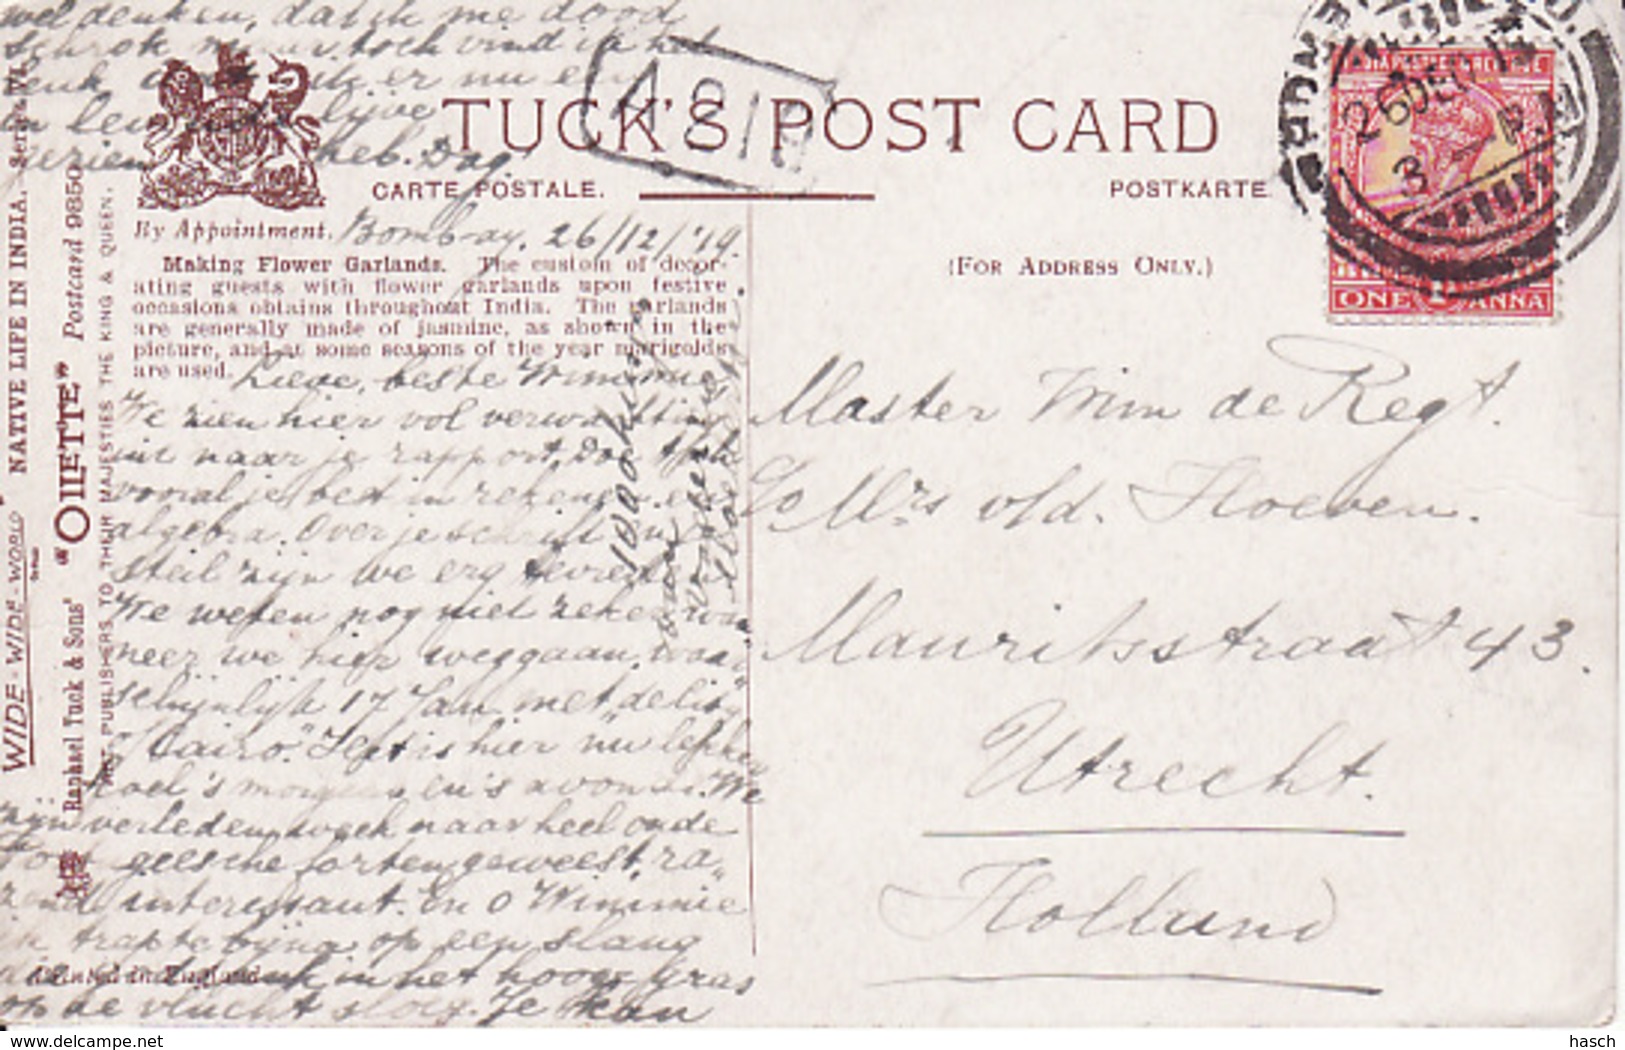 TUCK'S POST CARD
CARTE POSTALE.
POSTKARTE
(FOR ADDRESS ONLY.)
By Appointment.
Bombay. 26/12/'19.
Making Flower Garlands. The custom of decor-
ating guests with flower garlands upon festive
occasions obtains throughout India. The garlands
are generally made of jasmine, as shown in the
picture, and at some seasons of the year marigolds
are used.
Lieve, beste Wimmie
We zien hier vol verwachting
uit naar je rapport. Doe
vooral je best in rekenen en
algebra. Over je schrift en
steil zijn we erg tevreden
We weten nog niet zeker wan
neer we hier weggaan, waar
schijnlijk 17 Jan. met de City
of Cairo." 't is hier nu lekker
koel 's morgens en 's avonds. We
zijn verleden week naar heel oude
geweest, ra
zend interessant. En o Wimmie
ik trapte bijna op een slang
die in het hooge gras
op de vlucht sloeg. Je kan
wel denken, dat ik me dood
schrok, maar toch vind ik het
leuk dat ik er nu een
in levenden lijve
gezien heb. Dag!
Master Wim de Regt.
c/o Mrs v/d. Hoeven.
Mauritsstraat 43.
Utrecht.
Holland
26 DE 19
3 - P.M
ONE 1 ANNA
WIDE-WIDE-WORLD
NATIVE LIFE IN INDIA. Series VI
Raphael Tuck & Sons' "OILETTE" Postcard 9850
ART PUBLISHERS TO THEIR MAJESTIES THE KING & QUEEN.
Printed in England
delcampe.net
hasch